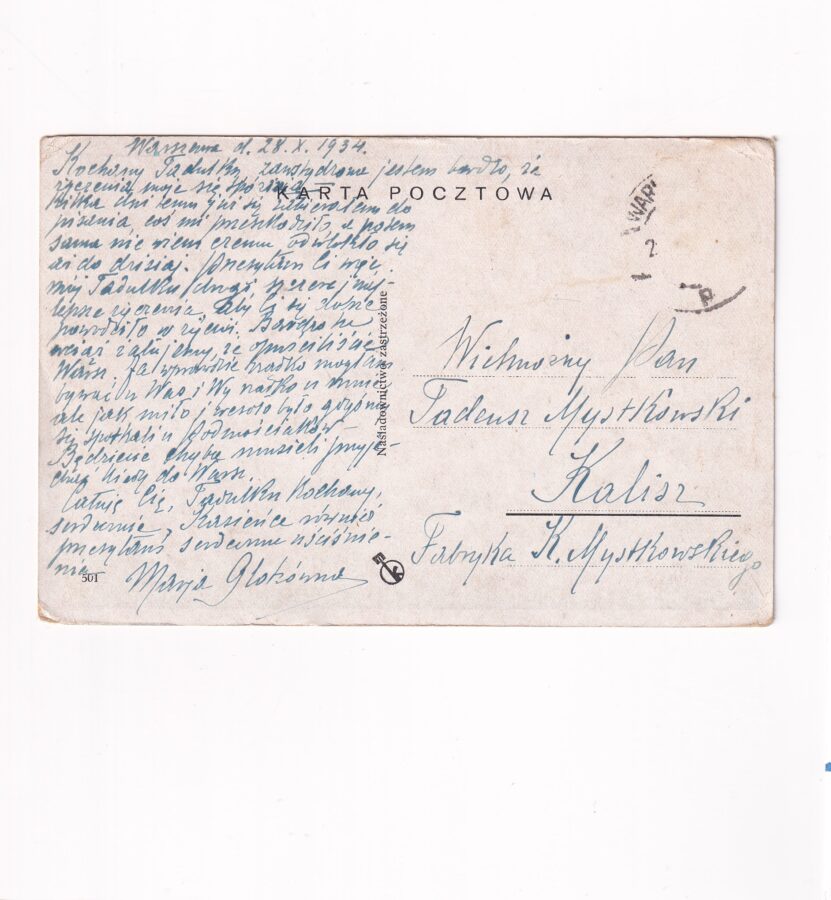 Warszawa d. 28.X.1934.
Kochany Tadulku, zawstydzona jestem bardzo, że
życzenia moje się spóźnią
KARTA POCZTOWA
kilka dni temu już się zabierałam do
pisania, coś mi przeszkodziło, a potem
sama nie wiem czemu odwlokło się
aż do dzisiaj. Przesyłam Ci więc,
mój Tadulku drogi, naj-
lepsze życzenia, aby Ci się dobrze
powodziło w życiu. Bardzo
wciąż żałujemy, że opuściliście
Warsz. bo wprawdzie rzadko mogłam
bywać u Was i Wy rzadko u mnie,
ale jak miło i wesoło było gdyśmy
się spotkali u
Będziecie chyba musieli przyje-
chać kiedy do Warsz.
Całuję Cię, Tadulku Kochany,
serdecznie, również
przesyłam serdeczne uściśnie-
nia Marja
501
Naśladownictwo zastrzeżone
WAR
2
P
Wielmożny Pan
Tadeusz Mystkowski
Kalisz
Fabryka K. Mystkowskiego